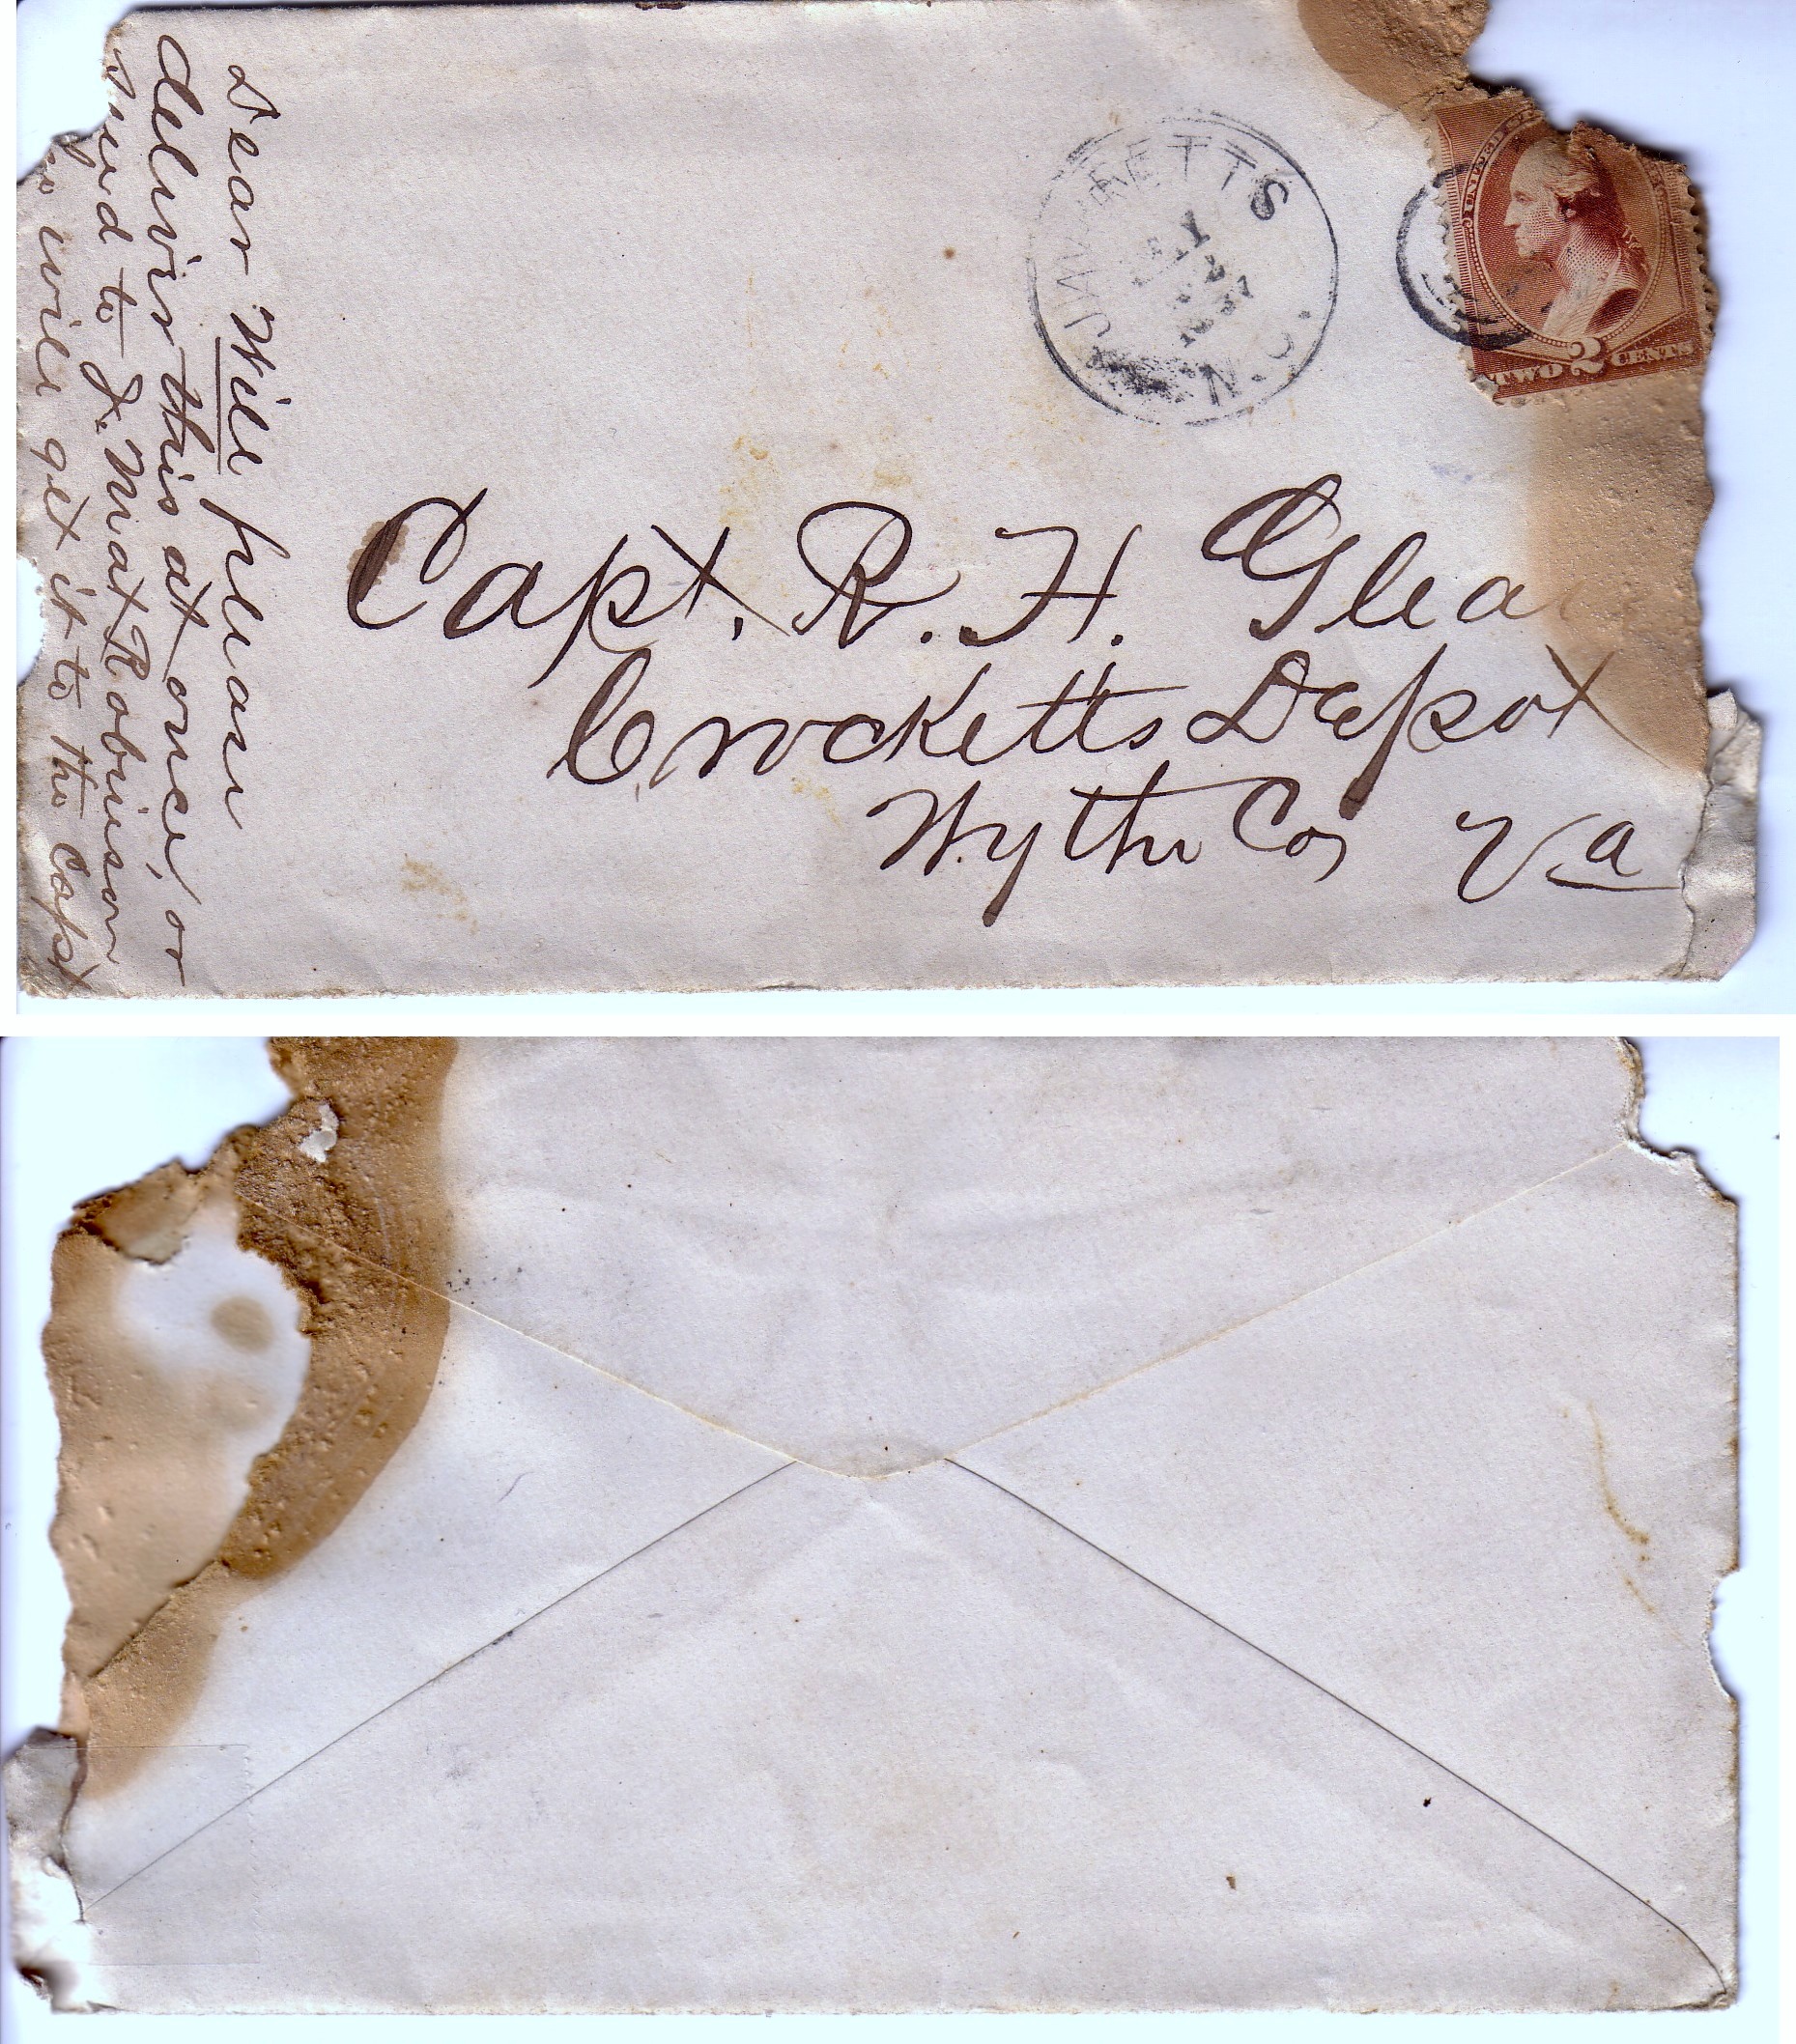 Dear Will please
deliver this at once, or
send to J. Mat Robinson
will get it to the Capt
ETTS
N.C.
UNITED
TWO 2 CENTS
Capt. R. H. Glea
Crocketts Depot
Wythe Co, Va